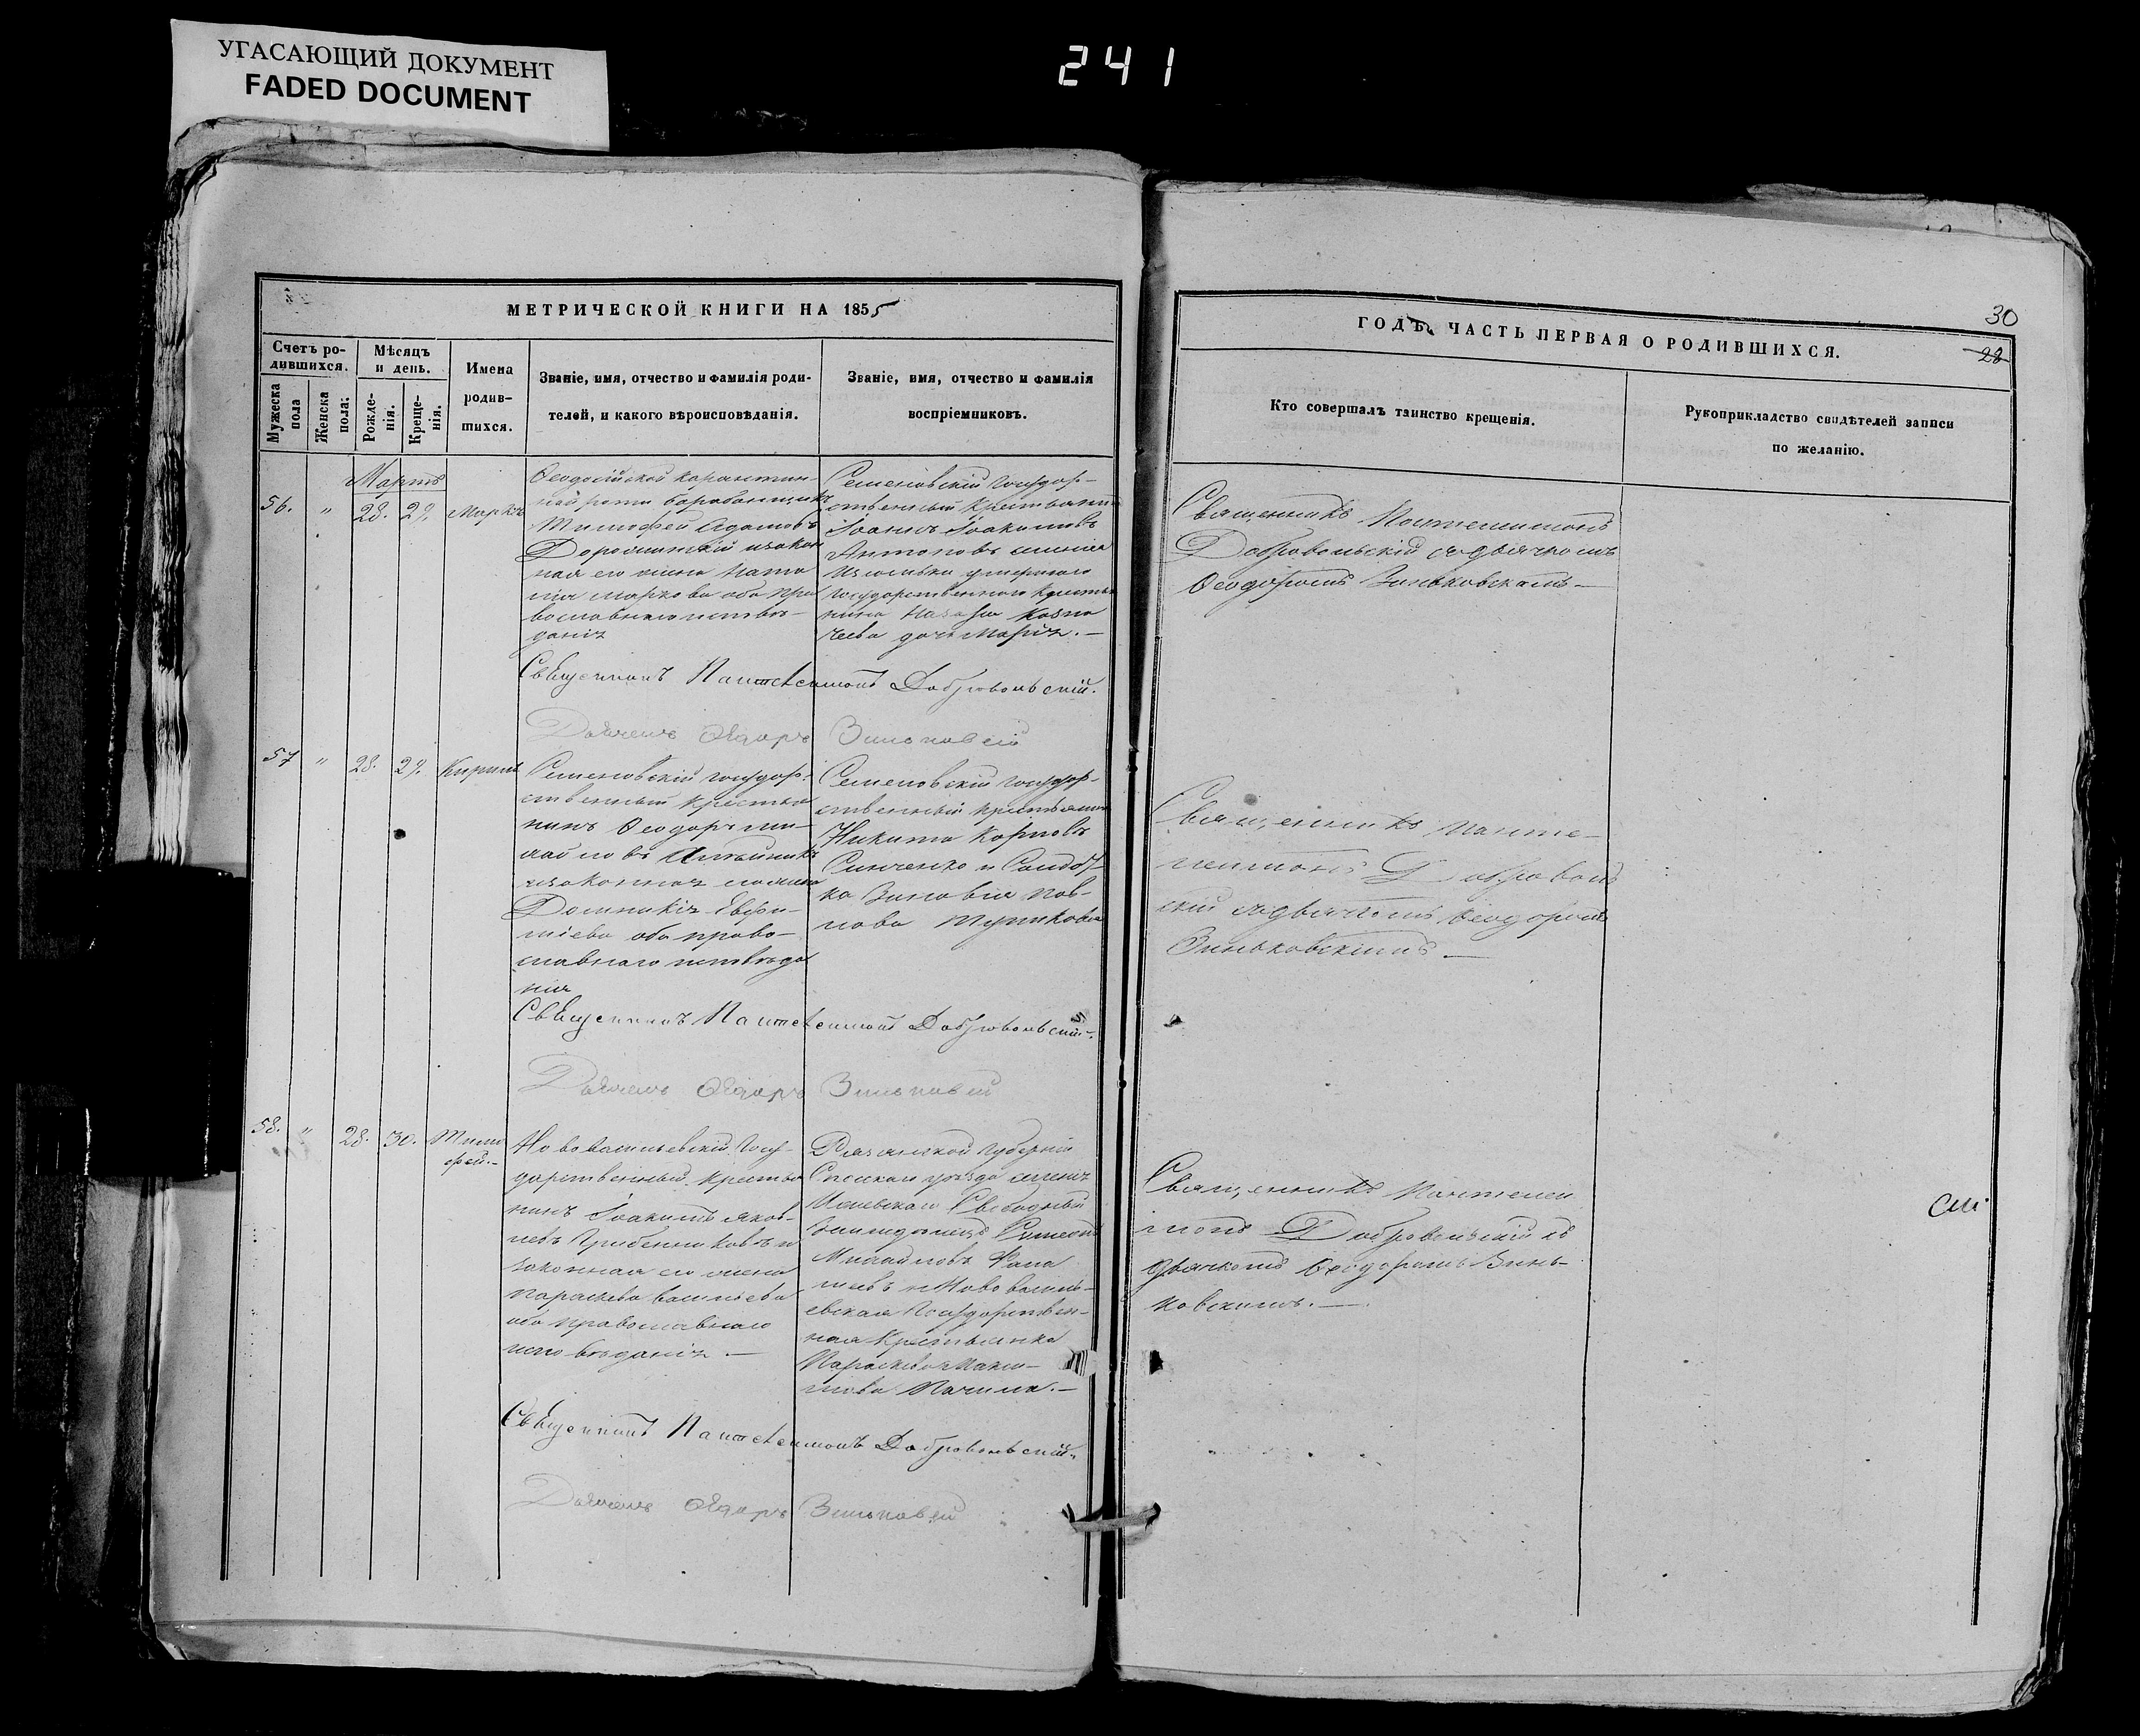 УГАСАЮЩИЙ ДОКУМЕНТ
FADED DOCUMENT
241
МЕТРИЧЕСКОЙ КНИГИ НА 1855
Счетъ ро-
дившихся.
Мужеска
пола
Женска
пола:
Мѣсяцъ
и день.
Рожде-
нія.
Креще-
нія.
Имена
родив-
шихся.
Званіе, имя, отчество и фамилія роди-
телей, и какого вѣроисповѣданія.
Званіе, имя, отчество и фамилія
воспріемниковъ.
Мартъ
56. " 28. 29. Маркъ
Ѳеодосійской карантин-
ной роты барабанщикъ
Тимофей Адамовъ
и закон
ная его жена
Маркова оба пра
вославнаго исповѣ-
данія
Семеновскій государ-
ственный крестьянинъ
Іоаннъ Іоакимовъ
Антоновъ
умершаго
государственнаго крестья
нина Назара
дочь Марія. —
Священникъ Пантелеимонъ Добровольскій.
Дьячекъ Ѳедоръ Зиньковскій
57 " 28. 29. Кирилъ
Семеновскій государ-
ственный крестья
нинъ Ѳеодоръ Ми-
хайловъ
и законная его жена
Домникія Евѳи-
міева оба право-
славнаго исповѣда
нія
Семеновскій государ-
ственный крестьянинъ
Никита Карповъ
Синченко и
ка Зиновія Пав-
лова
Священникъ Пантелеимонъ Добровольскій.
Дьячекъ Ѳедоръ Зиньковскій
58. " 28. 30. Тимо
фей. —
Нововасильевскій Госу-
дарственный крестья
нинъ Іоакимъ Яков-
левъ Гребенниковъ и
законная его жена
Параскева Васильева
оба православнаго
исповѣданія. —
Рязанской губерніи
Спаскаго уѣзда селенія
Ижевскаго Свободный
Симеонъ
Михайловъ
и Нововасиль-
евская Государствен-
ная крестьянка
Параскева Макси-
мова
Священникъ Пантелеимонъ Добровольскій.
Дьячекъ Ѳедоръ Зиньковскій
30
28
ГОДЪ. ЧАСТЬ ПЕРВАЯ О РОДИВШИХСЯ.
Кто совершалъ таинство крещенія.
Рукоприкладство свидѣтелей записи
по желанію.
Священникъ Пантелеимонъ
Добровольскій съ дьячкомъ
Ѳеодоромъ Зиньковскимъ —
Священникъ Панте-
леимонъ Доброволь
скій съ дьячкомъ Ѳеодоромъ
Зиньковскимъ. —
Священникъ Пантелеи
монъ Добровольскій съ
дьячкомъ Ѳеодоромъ Зинь-
ковскимъ. —